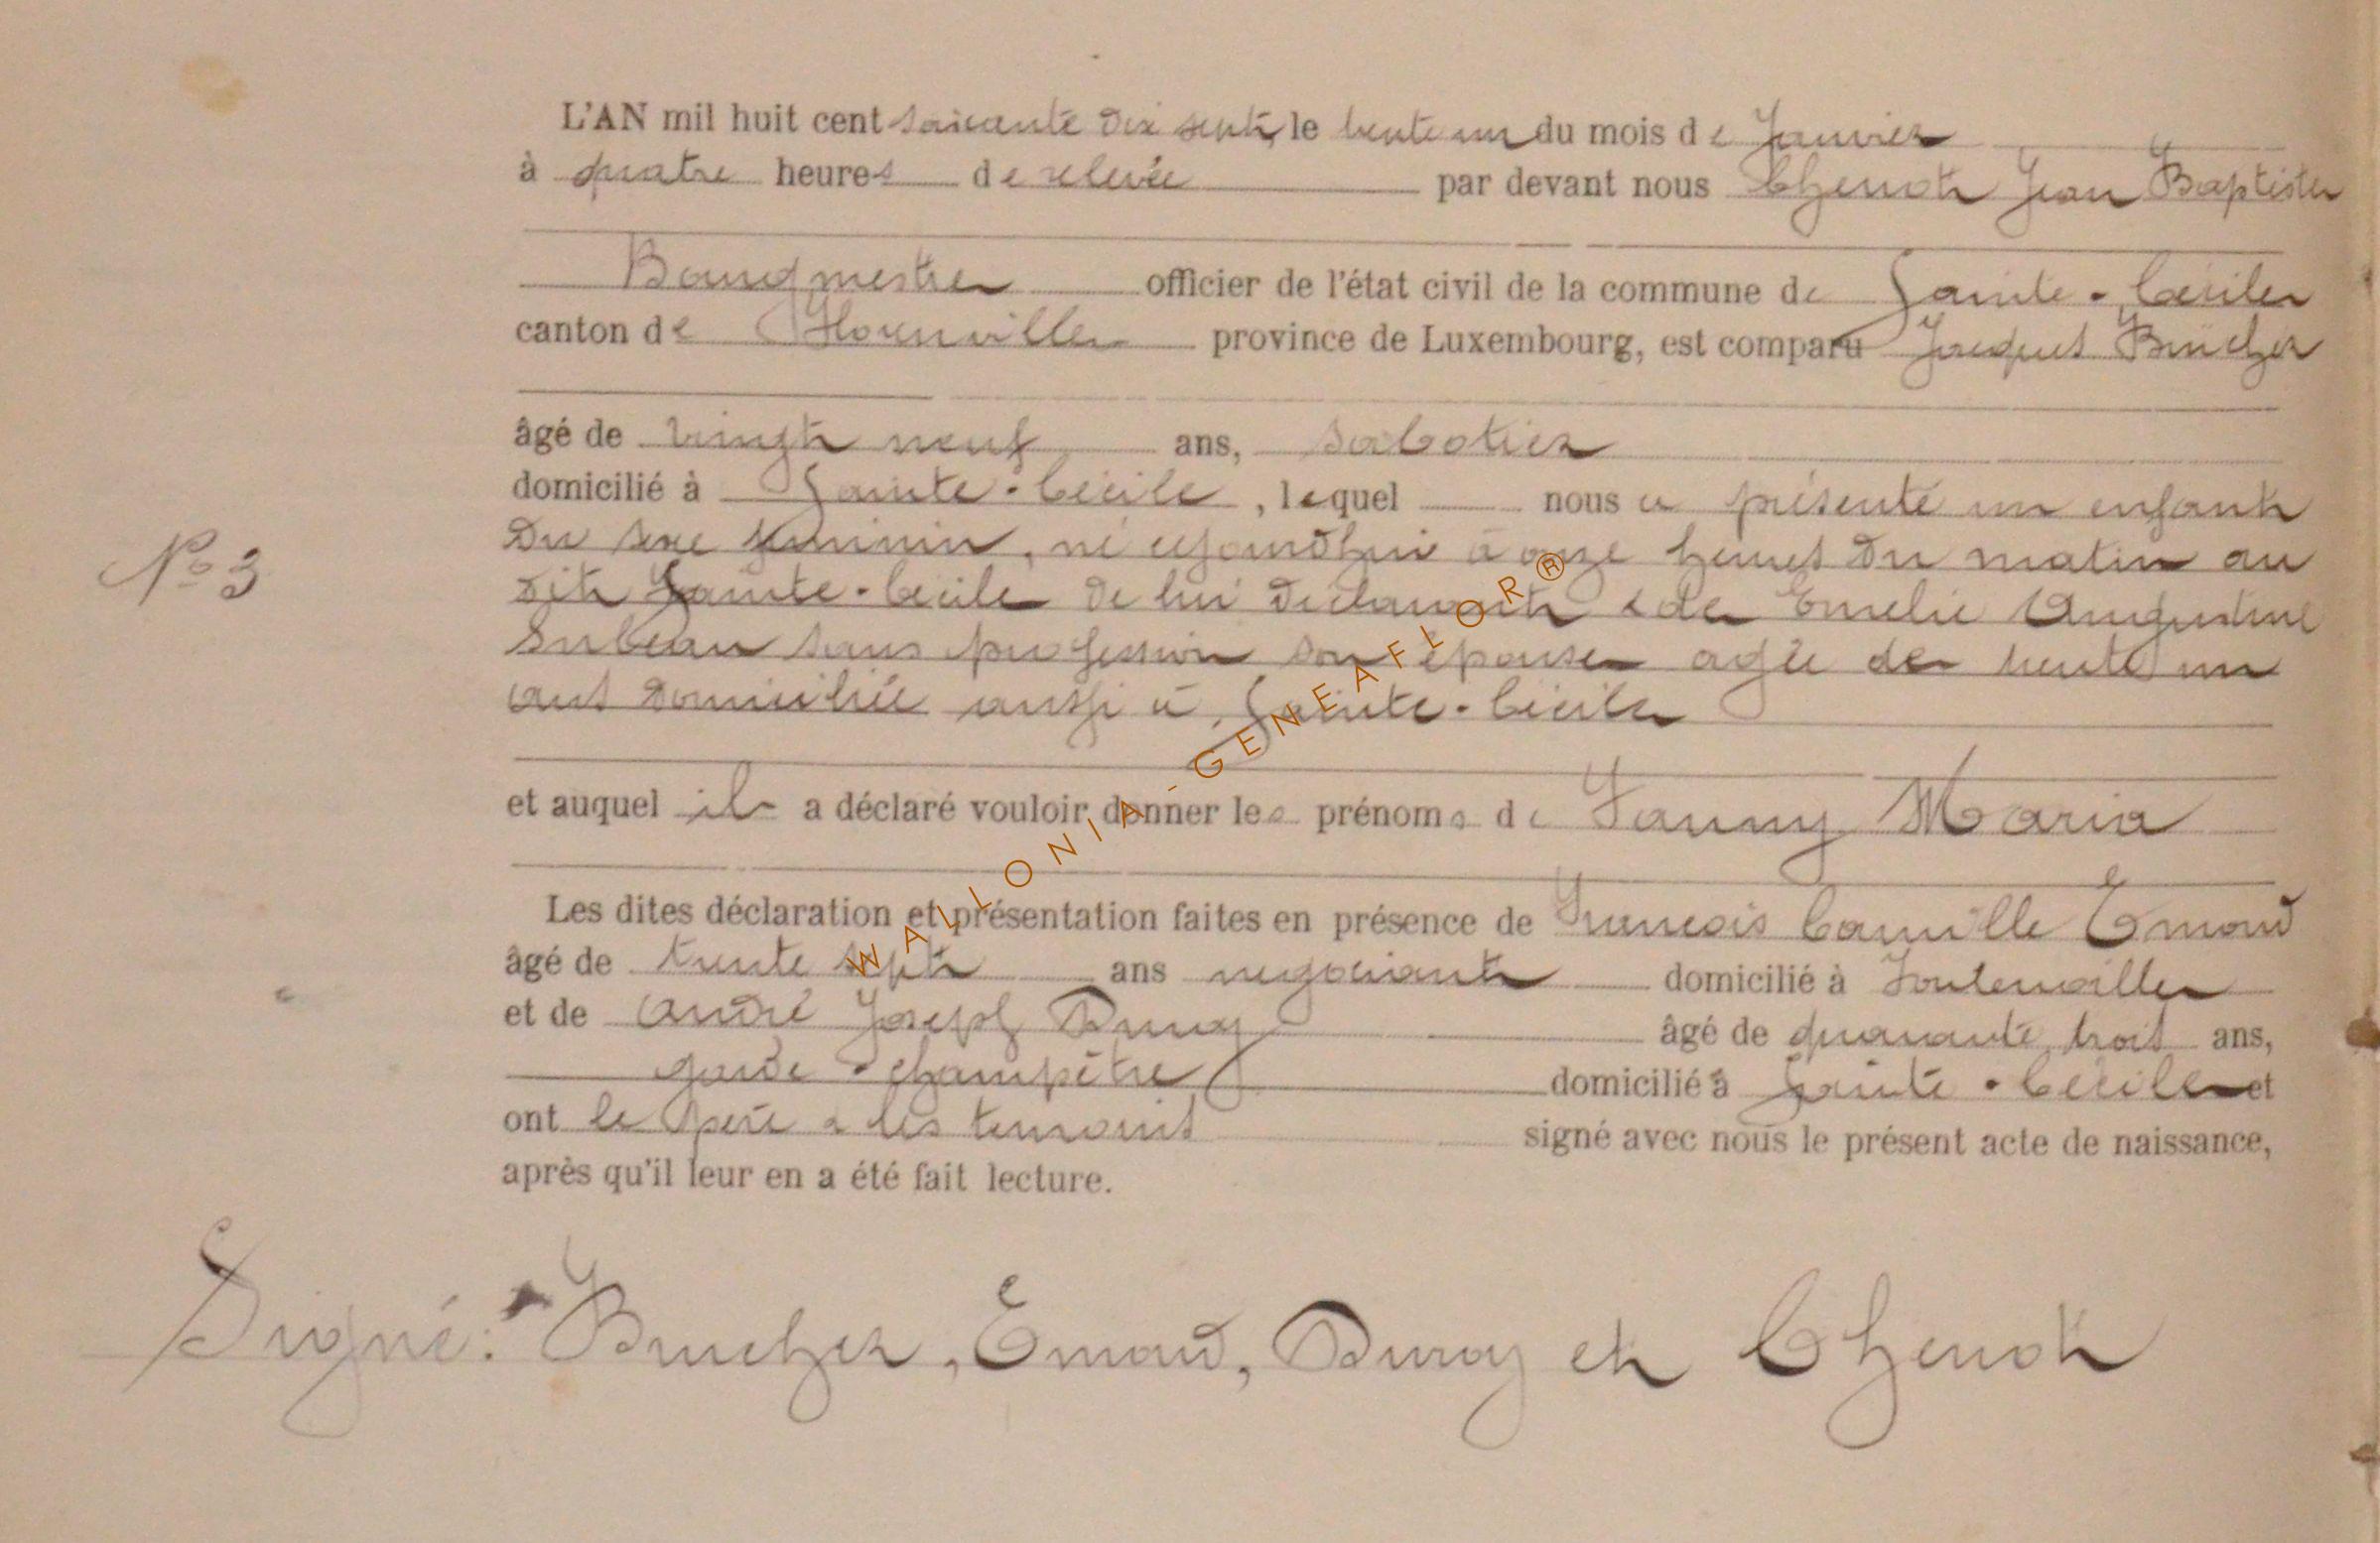 L'AN mil huit cent soixante dix sept, le trente un du mois de Janvier
à quatre heures de relevée par devant nous Thenot Jean Baptiste
Bourgmestre officier de l'état civil de la commune de Sainte-Cécile
canton de Florenville province de Luxembourg, est comparu Jacques Brucher
âgé de vingt neuf ans, sabotier
domicilié à Sainte-Cécile, lequel nous a présenté un enfant
du sexe féminin, né aujourd'hui à onze heures du matin au
dit Sainte-Cécile de lui déclarant & de Emelie Augustine
sans profession son épouse agée de trente un
ans domiciliée aussi à Sainte-Cécile
et auquel il a déclaré vouloir donner les prénoms de Fanny Maria
Les dites déclaration et présentation faites en présence de Francois Camille Emond
âgé de trente sept ans negociant domicilié à Fontenoille
et de André Joseph Duroy âgé de quarante trois ans,
garde-champêtre domicilié à Sainte-Cécile et
ont le père & les temoins signé avec nous le présent acte de naissance,
après qu'il leur en a été fait lecture.
N° 3
Signé: Brucher, Emond, Duroy et Thenot
WALLONIA-GENEAFLOR®